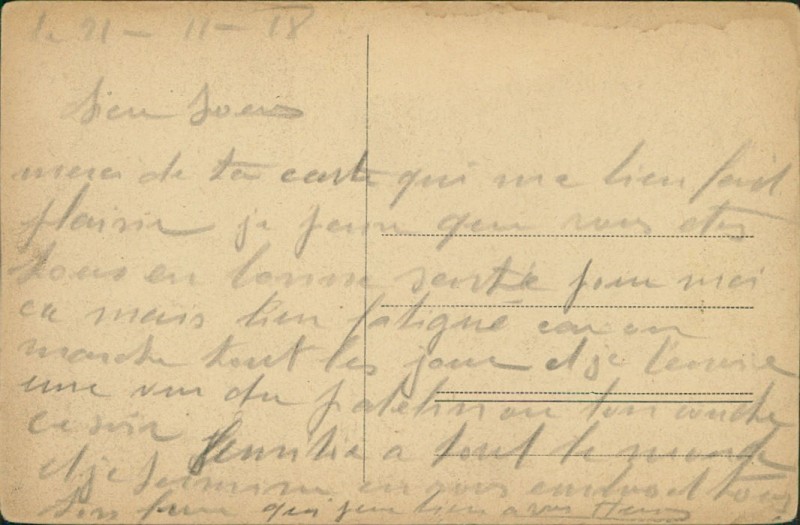 le 21-11-18
bien Soeur
merci de ta carte qui ma bien fait
plaisir je pense que vous etes
tous en bonne santée pour moi
ca mais bien fatigué car on
marche tout les jour et je t'envoie
une vue du patelin ou ton couche
ce soir a tout le monde
et je termine en vous embrast tous
ton frere qui pense bien a vous